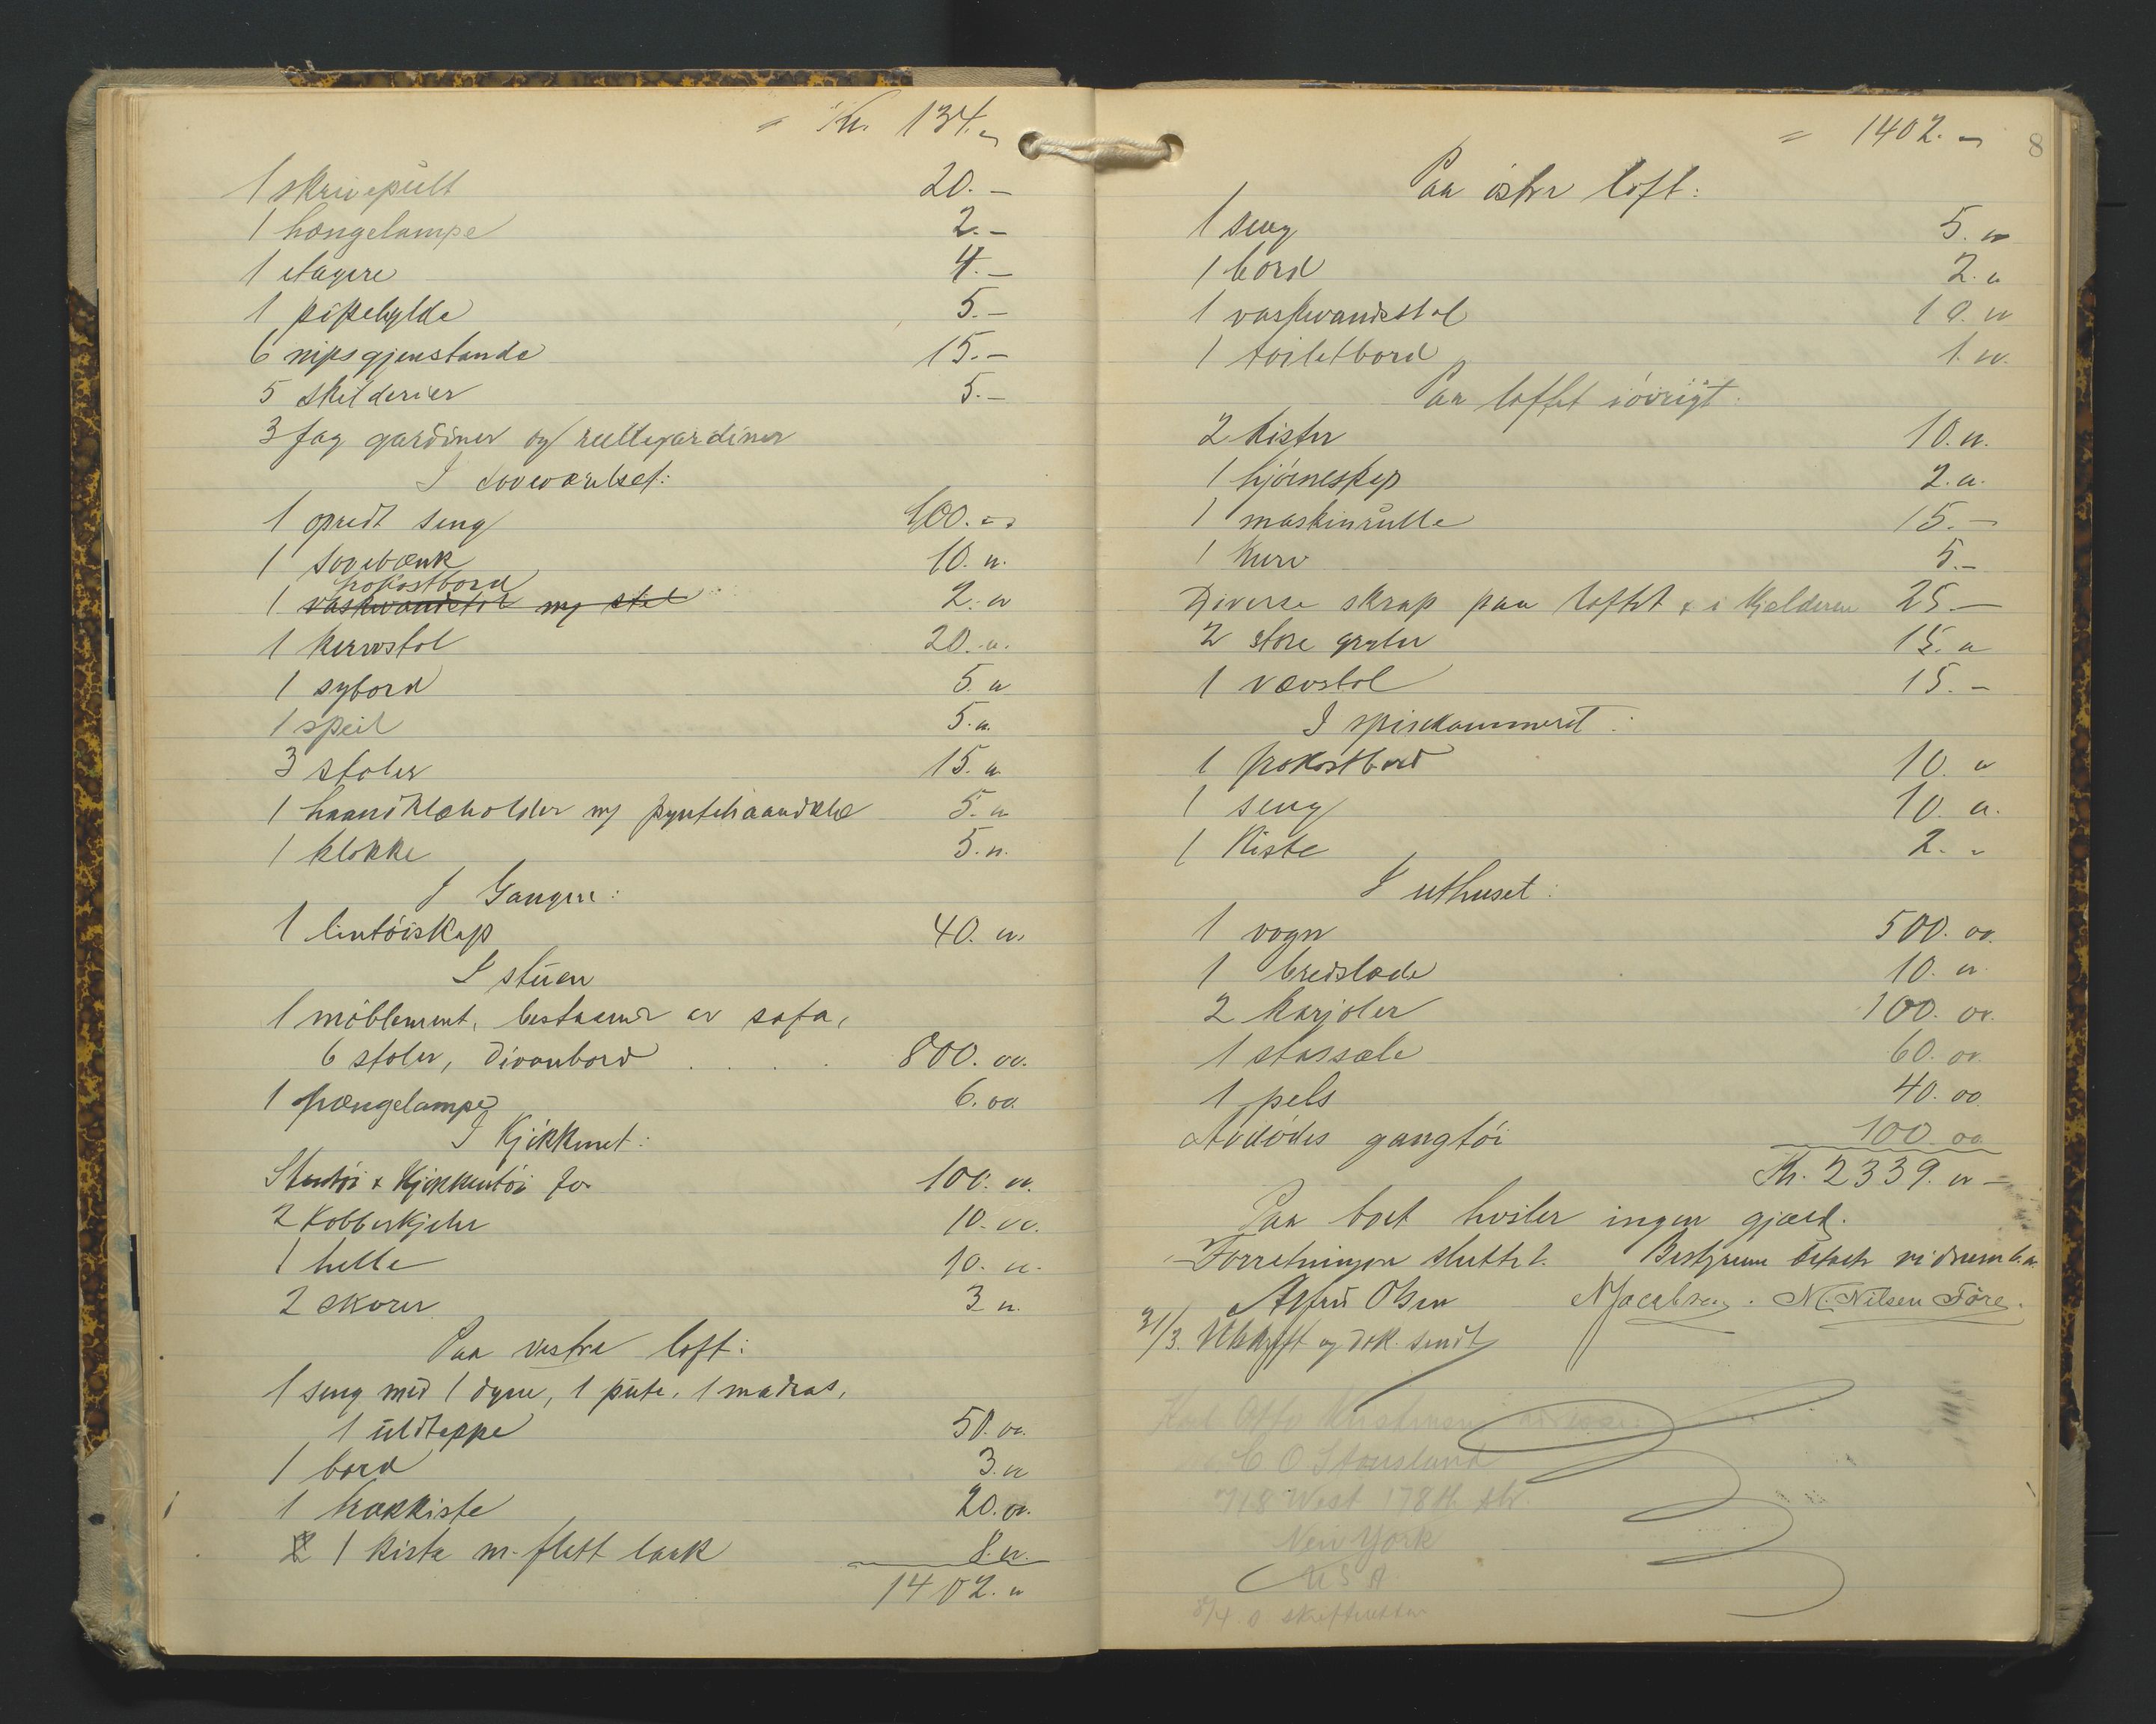 = Kr. 134. -
1 skrivepult 20. -
1 hængelampe 2. -
1 etagere 4. -
1 pipehylde 5. -
6 nipsgjenstande 15. -
5 skilderier 5. -
3 fag gardiner og rullegardiner
I soveværelset:
1 opredt seng 100. -
1 sovebænk 10. "
frokostbord
1 vaskvandstol m/ stel 2. "
1 kurvstol 20. "
1 sybord 5. "
1 speil 5. "
3 stoler 15. "
1 haandklæholder m/ pyntehaandklæ 5. "
1 klokke 5. "
I Gangen:
1 lintöiskap 40. "
I stuen
1 möblement, bestaaende av sofa,
6 stoler, divanbord . . . . 800. oo.
1 hængelampe 6. oo
I kjökkenet:
Stentöi & kjökkentöi for 100. oo.
2 kobberkjeler 10. oo.
1 helle 10. "
2 skorer 3 "
Paa vestre loft:
1 seng med 1 dyne, 1 pute, 1 madras,
1 uldteppe 50. oo.
1 bord 3. "
1 trækkiste 20. oo.
2 1 kiste m. flatt laak 8. "
1402. "
= 1402. - 8
Paa östre loft:
1 seng 5. "
1 bord 2. "
1 vaskvandstol 10. "
1 toiletbord 1. "
Paa loftet iövrigt.
2 kister 10. "
1 hjörneskap 2. "
1 maskinrulle 15. -
1 kurv 5. -
Diverse skrap paa loftet & i kjelderen 25 -
2 store gryter 15. "
1 vævstol 15. -
I spisekammeret:
1 frokostbord 10. "
1 seng 10. "
1 kiste 2. "
I uthuset:
1 vogn 500. oo.
1 bredslæde 10. "
2 karjoler 100. oo.
1 stassæle 60. oo.
1 pels 40. oo
Avdödes gangtöi 100 oo
Kr. 2339. " -
Paa boet hviler ingen gjæld.
Forretningen sluttet.
Olsen N Jacobsen. N. Nilsen Töre.
31/3. Utskrift og dok. sendt
C O Stousland
718 West 178th str.
New York
U S A
8/4. skifteretten